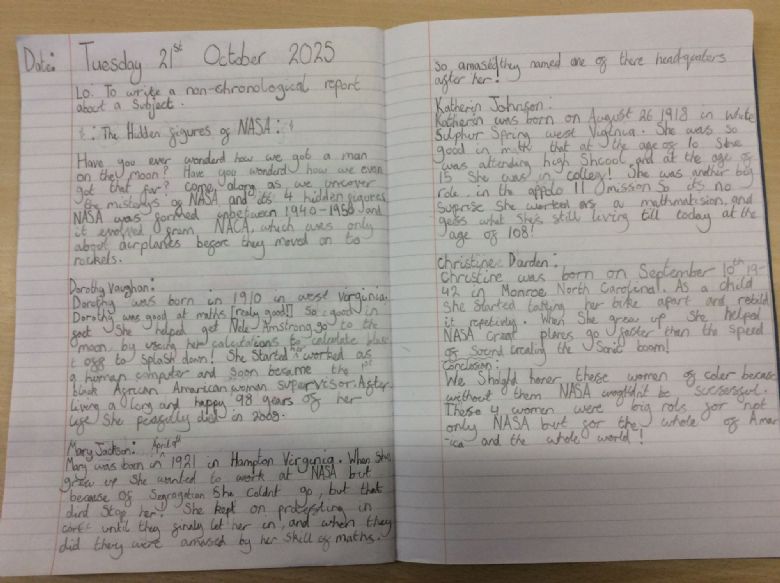 Date: Tuesday 21st October 2025
Lo: To write a non-chronological report
about a subject.
The Hidden figures of NASA:
Have you ever wonderd how we got a man
on the moon? Have you wonderd how we even
got that far? come along as we uncover
the mistorys of NASA and its 4 hidden figures
NASA was formed inbetween 1940-1950 and
it evolved from NACA, which was only
about airplanes before they moved on to
rockets.
Dorothy Vaughan:
Dorothy was born in 1910 in west virginia.
Dorothy was good at maths [really good] So good in
fact She helped get Nele Amstrong go to the
moon by using her calculations to calculate blast
off to splash down! She Started her worked as
a human computer and soon became the 1st
black African American woman supervisor. After
Living a long and happy 98 years of her
life She peasfully died in 2009.
Mary Jackson:
Mary was born in April 9th 1921 in Hampton Virginia. When She
grew up She wanted to work at NASA but
because of Segragation She Coldnt go, but that
didnd Stop her! She kept on protesting in
corts until they finaly let her in, and when they
did they were amased by her skill of maths.
So amased they named one of there headquaters
after her!
Katherin Johnson:
Katherin was born on August 26 1918 in White
Sulphur Spring west Virginia. She was so
good in math that at the age of 10 She
was attending high Shcool and at the age of
15 She was in colleg! She was anther big
role in the appolo 11 mission So its no
Suprise She worked as a mathmatision, and
gess what She's still living till today at the
age of 108!
Christine Darden:
Christine was born on September 10th 19-
42 in Monroe North Carolinal. As a child
She Started taking her bike apart and rebild
it repetivly. When She grew up She helped
NASA creat planes go faster than the speed
of sound creating the Sonic boom!
Conclusion:
We Should honer these women of coler because
without them NASA wouldn't be sucsessful.
These 4 women were big rols for not
only NASA but for the whole of Amer
-ica and the whole world!